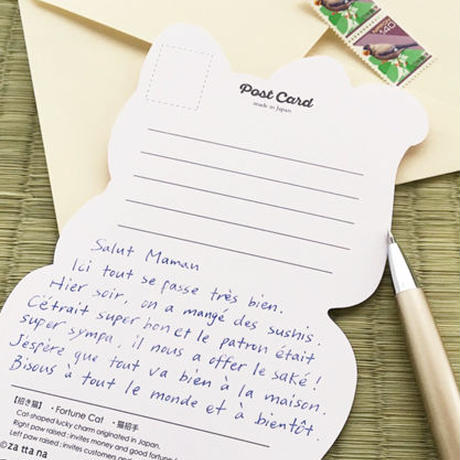 Post Card
made in Japan
Salut Maman
Ici tout se passe très bien.
Hier soir, on a mangé des sushis.
C'était super bon et le patron était
super sympa, il nous a offer le saké !
J'espère que tout va bien à la maison.
Bisous à tout le monde et à bientôt.
【招き猫】 ・Fortune Cat ・猫招手
Cat-shaped lucky charm originated in Japan.
Right paw raised : invites money and good fortune
Left paw raised : invites customers and
©zattana